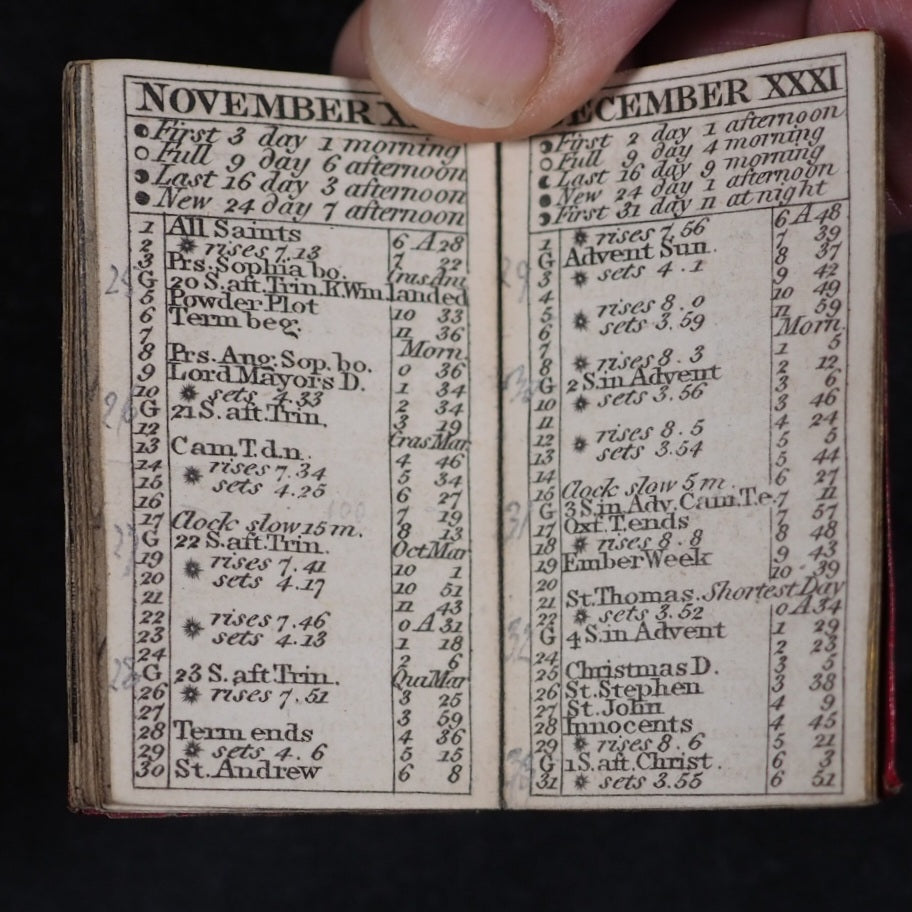 NOVEMBER
First 3 day 1 morning
Full 9 day 6 afternoon
Last 16 day 3 afternoon
New 24 day 7 afternoon
1 All Saints 6 A 28
2 rises 7.13 7 22
3 Prs. Sophia bo. Cras Ani
G 20 S. aft. Trin. K. Wm. landed
5 Powder Plot 10 33
6 Term beg. 11 36
7 Morn.
8 Prs. Aug. Sop. bo. 0 36
9 Lord Mayors D. 1 34
10 sets 4.33 2 34
G 21 S. aft. Trin. 3 19
12 Cras Mar
13 Cam T. d.n. 4 46
14 rises 7.34 5 34
15 sets 4.25 6 27
16 7 19
17 Clock slow 15 m. 8 13
G 22 S. aft. Trin. Oct Mar
19 rises 7.41 10 1
20 sets 4.17 10 51
21 11 43
22 rises 7.46 0 A 31
23 sets 4.13 1 18
24 2 6
G 23 S. aft. Trin. Qui Mar
26 rises 7.51 3 25
27 3 59
28 Term ends 4 36
29 sets 4.6 5 15
30 St. Andrew 6 8
ECEMBER XXXI
First 2 day 1 afternoon
Full 9 day 4 morning
Last 16 day 9 morning
New 24 day 1 afternoon
First 31 day 11 at night
1 rises 7.56 6 A 48
G Advent Sun. 7 39
3 sets 4.1 8 37
4 9 42
5 rises 8.0 10 49
6 sets 3.59 11 59
7 Morn.
8 rises 8.3 1 5
G 2 S. in Advent 2 12
10 sets 3.56 3 6
11 3 46
12 rises 8.5 4 24
13 sets 3.54 5 5
14 5 44
15 Clock slow 5 m. 6 27
G 3 S. in Adv. Cam. T. e. 7 11
17 Oxf. T. ends 7 57
18 rises 8.8 8 48
19 Ember Week 9 43
20 10 39
21 St. Thomas. Shortest Day
22 sets 3.52 0 A 34
G 4 S. in Advent 1 29
24 2 23
25 Christmas D. 3 5
26 St. Stephen 3 38
27 St. John 4 9
28 Innocents 4 45
29 rises 8.6 5 21
G 1 S. aft. Christ. 6 3
31 sets 3.55 6 51